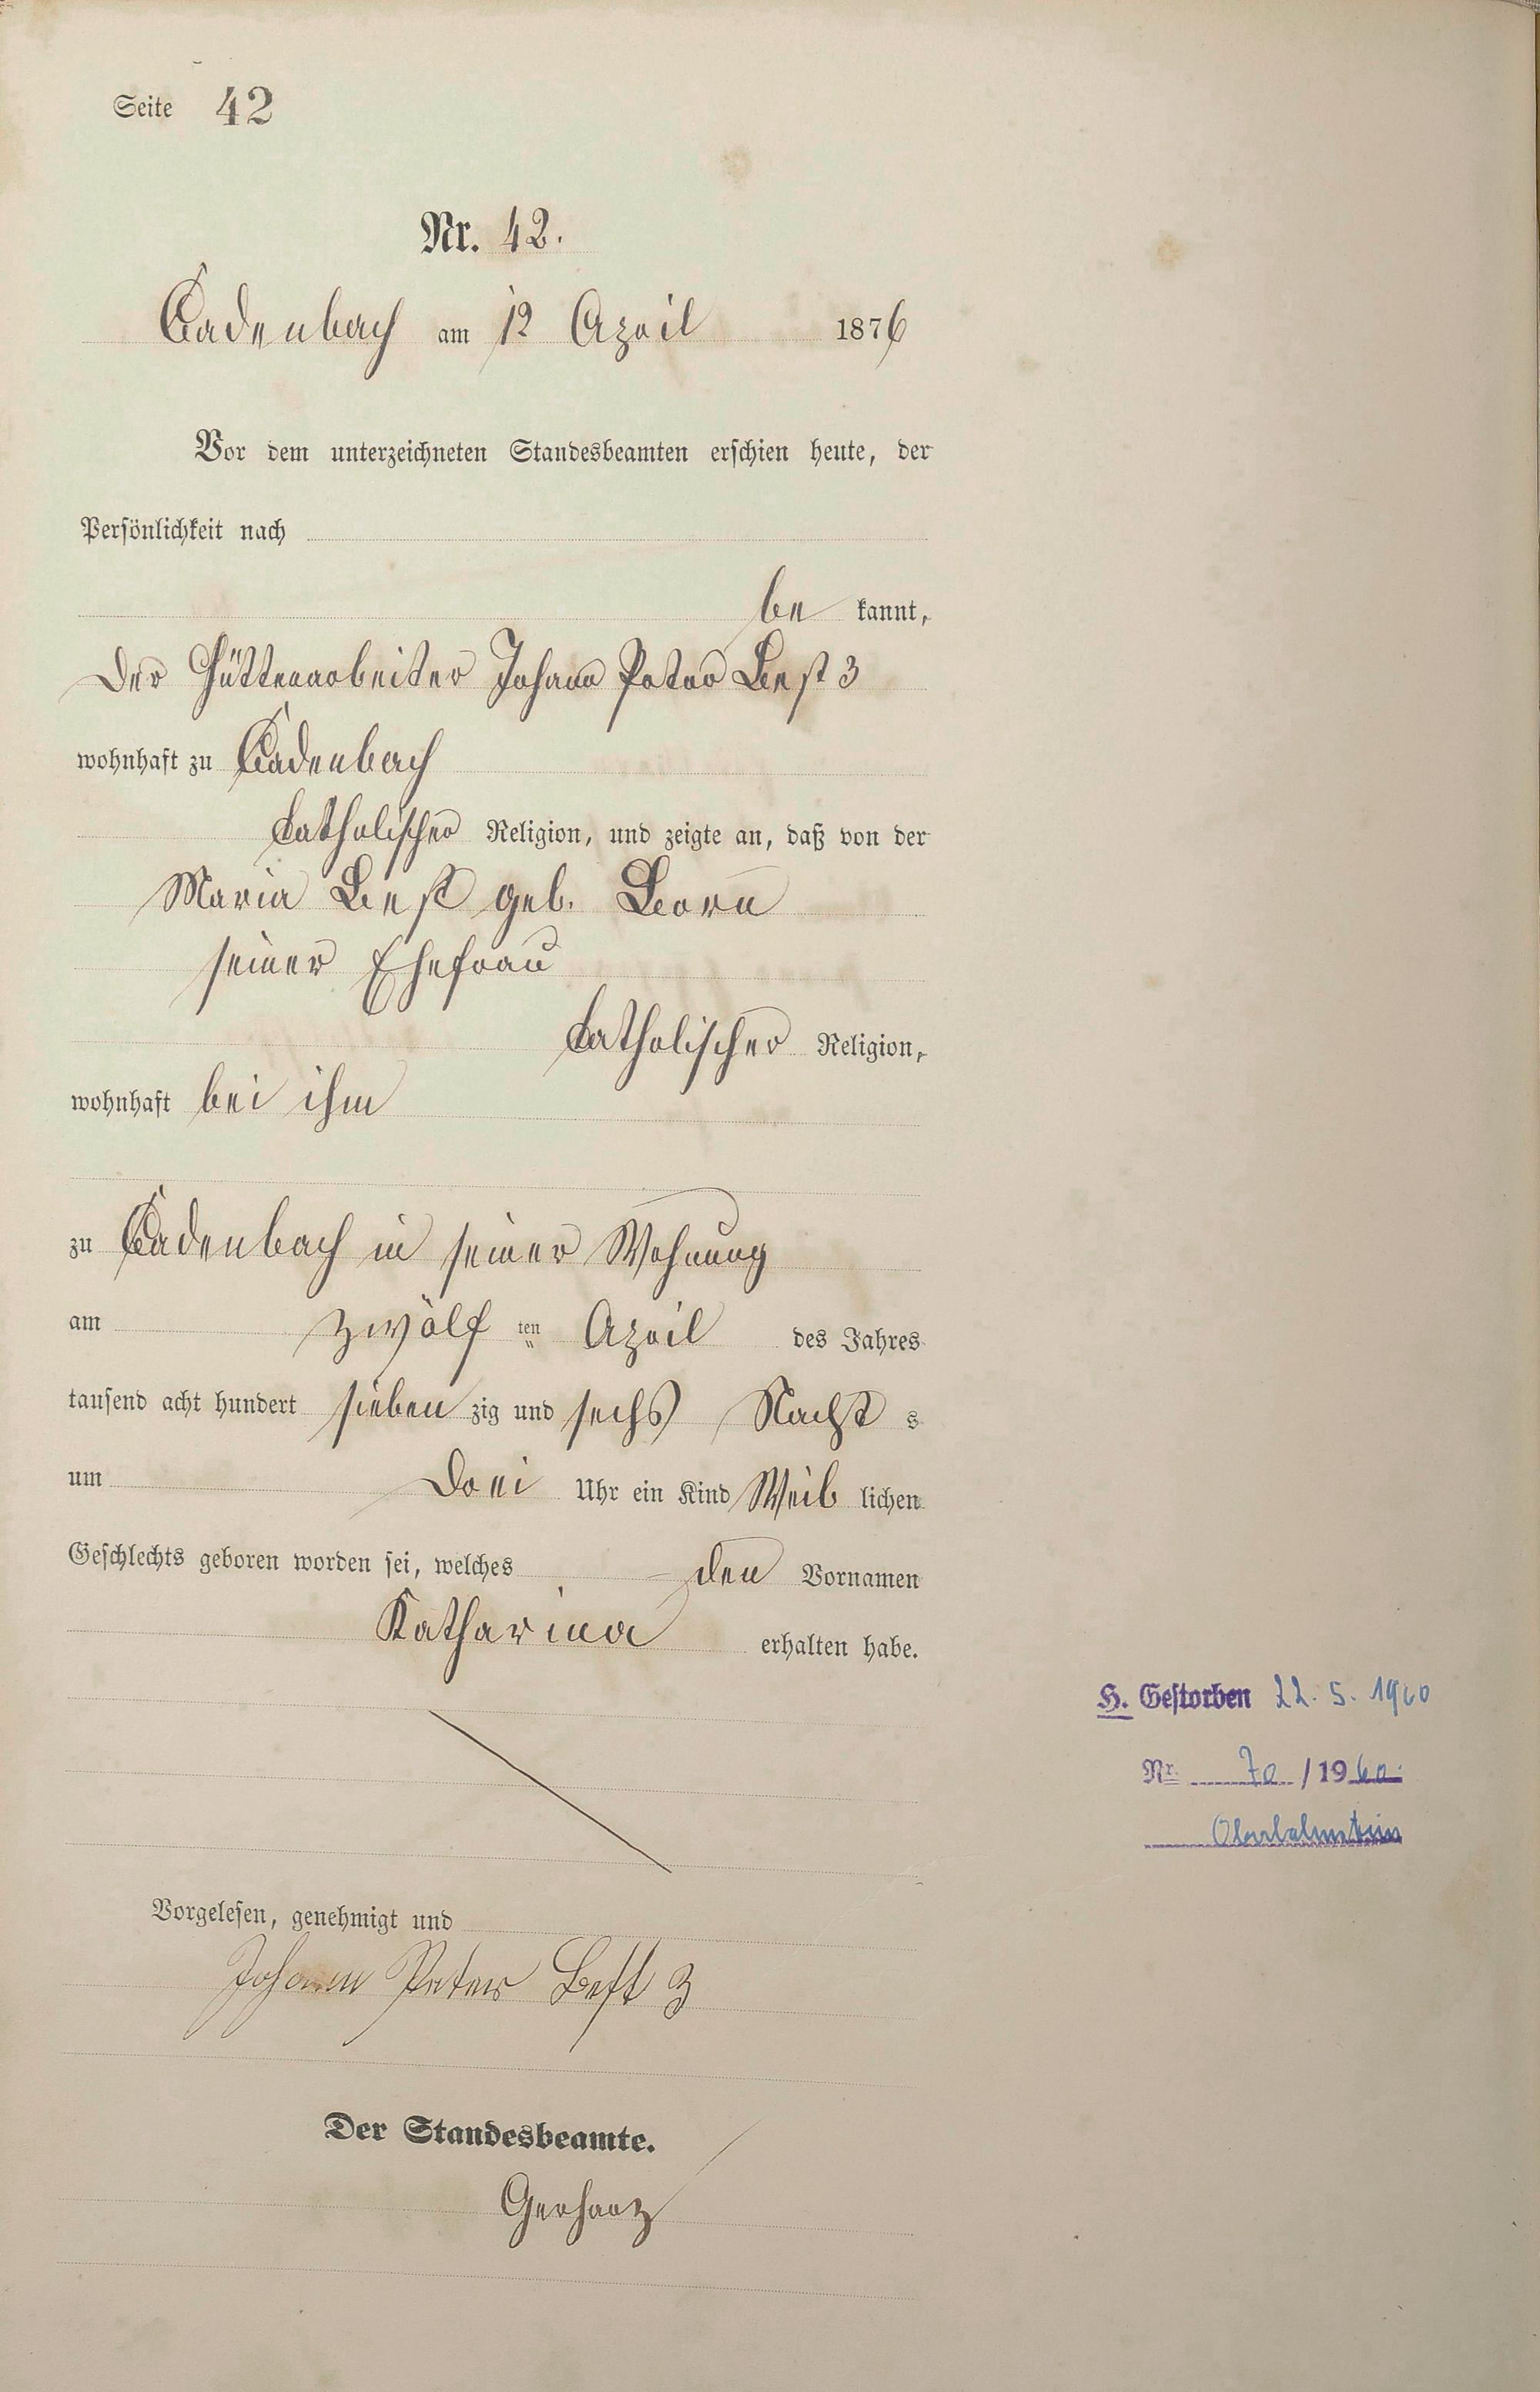 Seite 42
Nr. 42.
Cadenbach am 12 April 1876
Vor dem unterzeichneten Standesbeamten erschien heute, der
Persönlichkeit nach
be kannt,
Der Hüttenarbeiter Johann Peter Best 3
wohnhaft zu Cadenbach
katholischer Religion, und zeigte an, daß von der
Maria Best geb. Born
seiner Ehefrau
katholischer Religion,
wohnhaft bei ihm
zu Cadenbach in seiner Wohnung
am zwölf ten April des Jahres
tausend acht hundert sieben zig und sechs Nacht s
um Drei Uhr ein Kind Weib lichen
Geschlechts geboren worden sei, welches den Vornamen
Katharina erhalten habe.
Vorgelesen, genehmigt und
Johann Peter Best 3
Der Standesbeamte.
Gerharz
H. Gestorben 22. 5. 1960
Nr. 70 / 1960.
Oberlahnstein